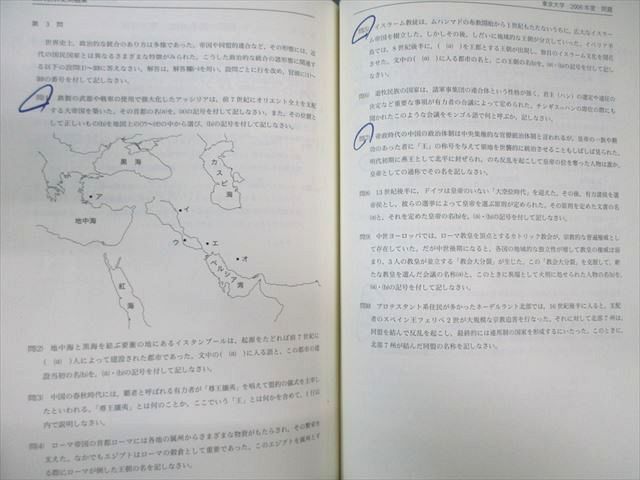 第 3 問
世界史上，政治的な統合のあり方は多様であった。帝国や同盟的連合など，その形態には，近
代の国民国家とは異なるさまざまな特徴がみられた。こうした政治的な統合の諸形態に関連す
る以下の設問(1)〜(10)に答えなさい。解答は，解答欄(ハ)を用い，設問ごとに行を改め，冒頭に(1)〜
(10)の番号を付して記しなさい。
問(1) 鉄製の武器や戦車の使用で強大化したアッシリアは，前7世紀にオリエント全土を支配
する大帝国を築いた。その首都の名(a)を，(a)の記号を付して記しなさい。また，その位置と
して正しいもの(b)を地図上の(ア)〜(オ)の中から選び，(b)の記号を付して記しなさい。
黒 海
カスピ海
ア
地中海
イ
ウ
エ
オ
ペルシア湾
紅海
問(2) 地中海と黒海を結ぶ要衝の地にあるイスタンブールは，起源をたどれば前7世紀に
( (a) )人によって建設された都市であった。文中の( (a) )に入る語と，この都市の建
設当初の名(b)を，(a)・(b)の記号を付して記しなさい。
問(3) 中国の春秋時代には，覇者と呼ばれる有力者が「尊王攘夷」を唱えて盟約の儀式を主宰し
たといわれる。「尊王攘夷」とは何のことか。ここでいう「王」とは何かを含めて，1行以
内で説明しなさい。
問(4) ローマ帝国の首都ローマには各地の属州からさまざまな物資がもたらされ，その繁栄を
支えた。なかでもエジプトはローマの穀倉として重要であった。このエジプトを属州とす
る際にローマが倒した王朝の名を記しなさい。
東京大学 2006年度・問題
問(5) イスラーム教徒は，ムハンマドの布教開始から1世紀もたたないうちに，広大なイスラー
ム帝国を樹立した。しかしその後，しだいに地域的な王朝が分立していった。イベリア半
島では，8世紀後半に，( (a) )を王都とする王朝が出現し，独自のイスラーム文化を開花
させた。文中の( (a) )に入る都市の名と，この王朝の名(b)を，(a)・(b)の記号を付して記
しなさい。
問(6) 遊牧民族の国家は，諸軍事集団の連合体という性格が強く，君主(ハン)の選定や遠征の
決定など重要な事項が有力者の会議によって定められた。チンギス=ハンの即位の際にも
開かれたこのような会議をモンゴル語で何と呼ぶか，記しなさい。
問(7) 帝政時代の中国の政治体制は中央集権的な官僚統治体制と言われるが，皇帝の一族や勲
功のあった者に「王」の称号を与えて領地を世襲的に統治させることもしばしば見られた。
明代初期に燕王として北平に封ぜられ，のち反乱を起こして皇帝の位を奪った人物は誰か。
皇帝としての通称でその名を記しなさい。
問(8) 13世紀後半に，ドイツは皇帝のいない「大空位時代」を迎えた。その後，有力諸侯を選
帝侯とし，彼らの選挙によって皇帝を選ぶ原則が定められた。その原則を定めた文書の名
(a)と，それを定めた皇帝の名(b)を，(a)・(b)の記号を付して記しなさい。
問(9) 中世ヨーロッパでは，ローマ教皇を頂点とするカトリック教会が，宗教的な普遍権威とし
て存在していた。だが中世後期になると，各国の地域的な独立性が増して教皇の権威は弱
まり，3人の教皇が並立する「教会大分裂」が生じた。この「教会大分裂」を克服して，新
たな教皇を選んだ会議の名称(a)と，このときに異端として火刑に処せられた人物の名(b)を，
(a)・(b)の記号を付して記しなさい。
問(10) プロテスタント系住民が多かったネーデルラント北部では，16世紀後半に入ると，支配
者のスペイン王フェリペ2世が大規模な宗教迫害を行なった。それに対して北部7州は，
同盟を結んで反乱を起こし，最終的には連邦制の国家を形成するにいたった。このときに，
北部7州が結んだ同盟の名称を記しなさい。